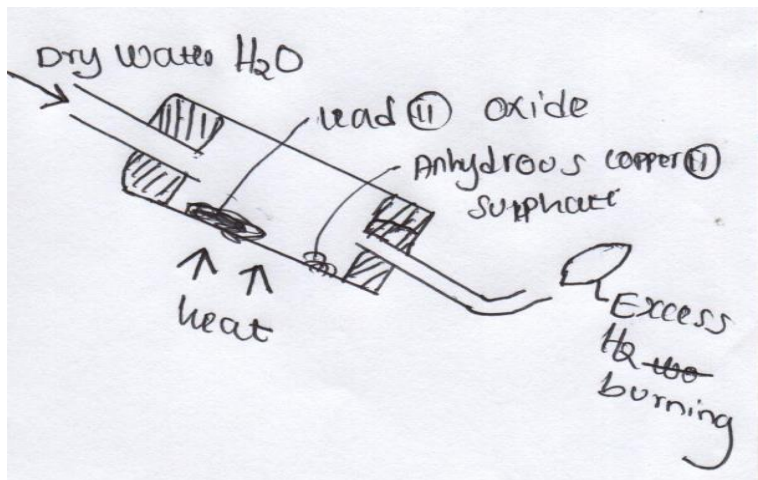 Dry Water H2O
Lead (II) oxide
Anhydrous copper (II)
Sulphate
heat
Excess
H2
burning